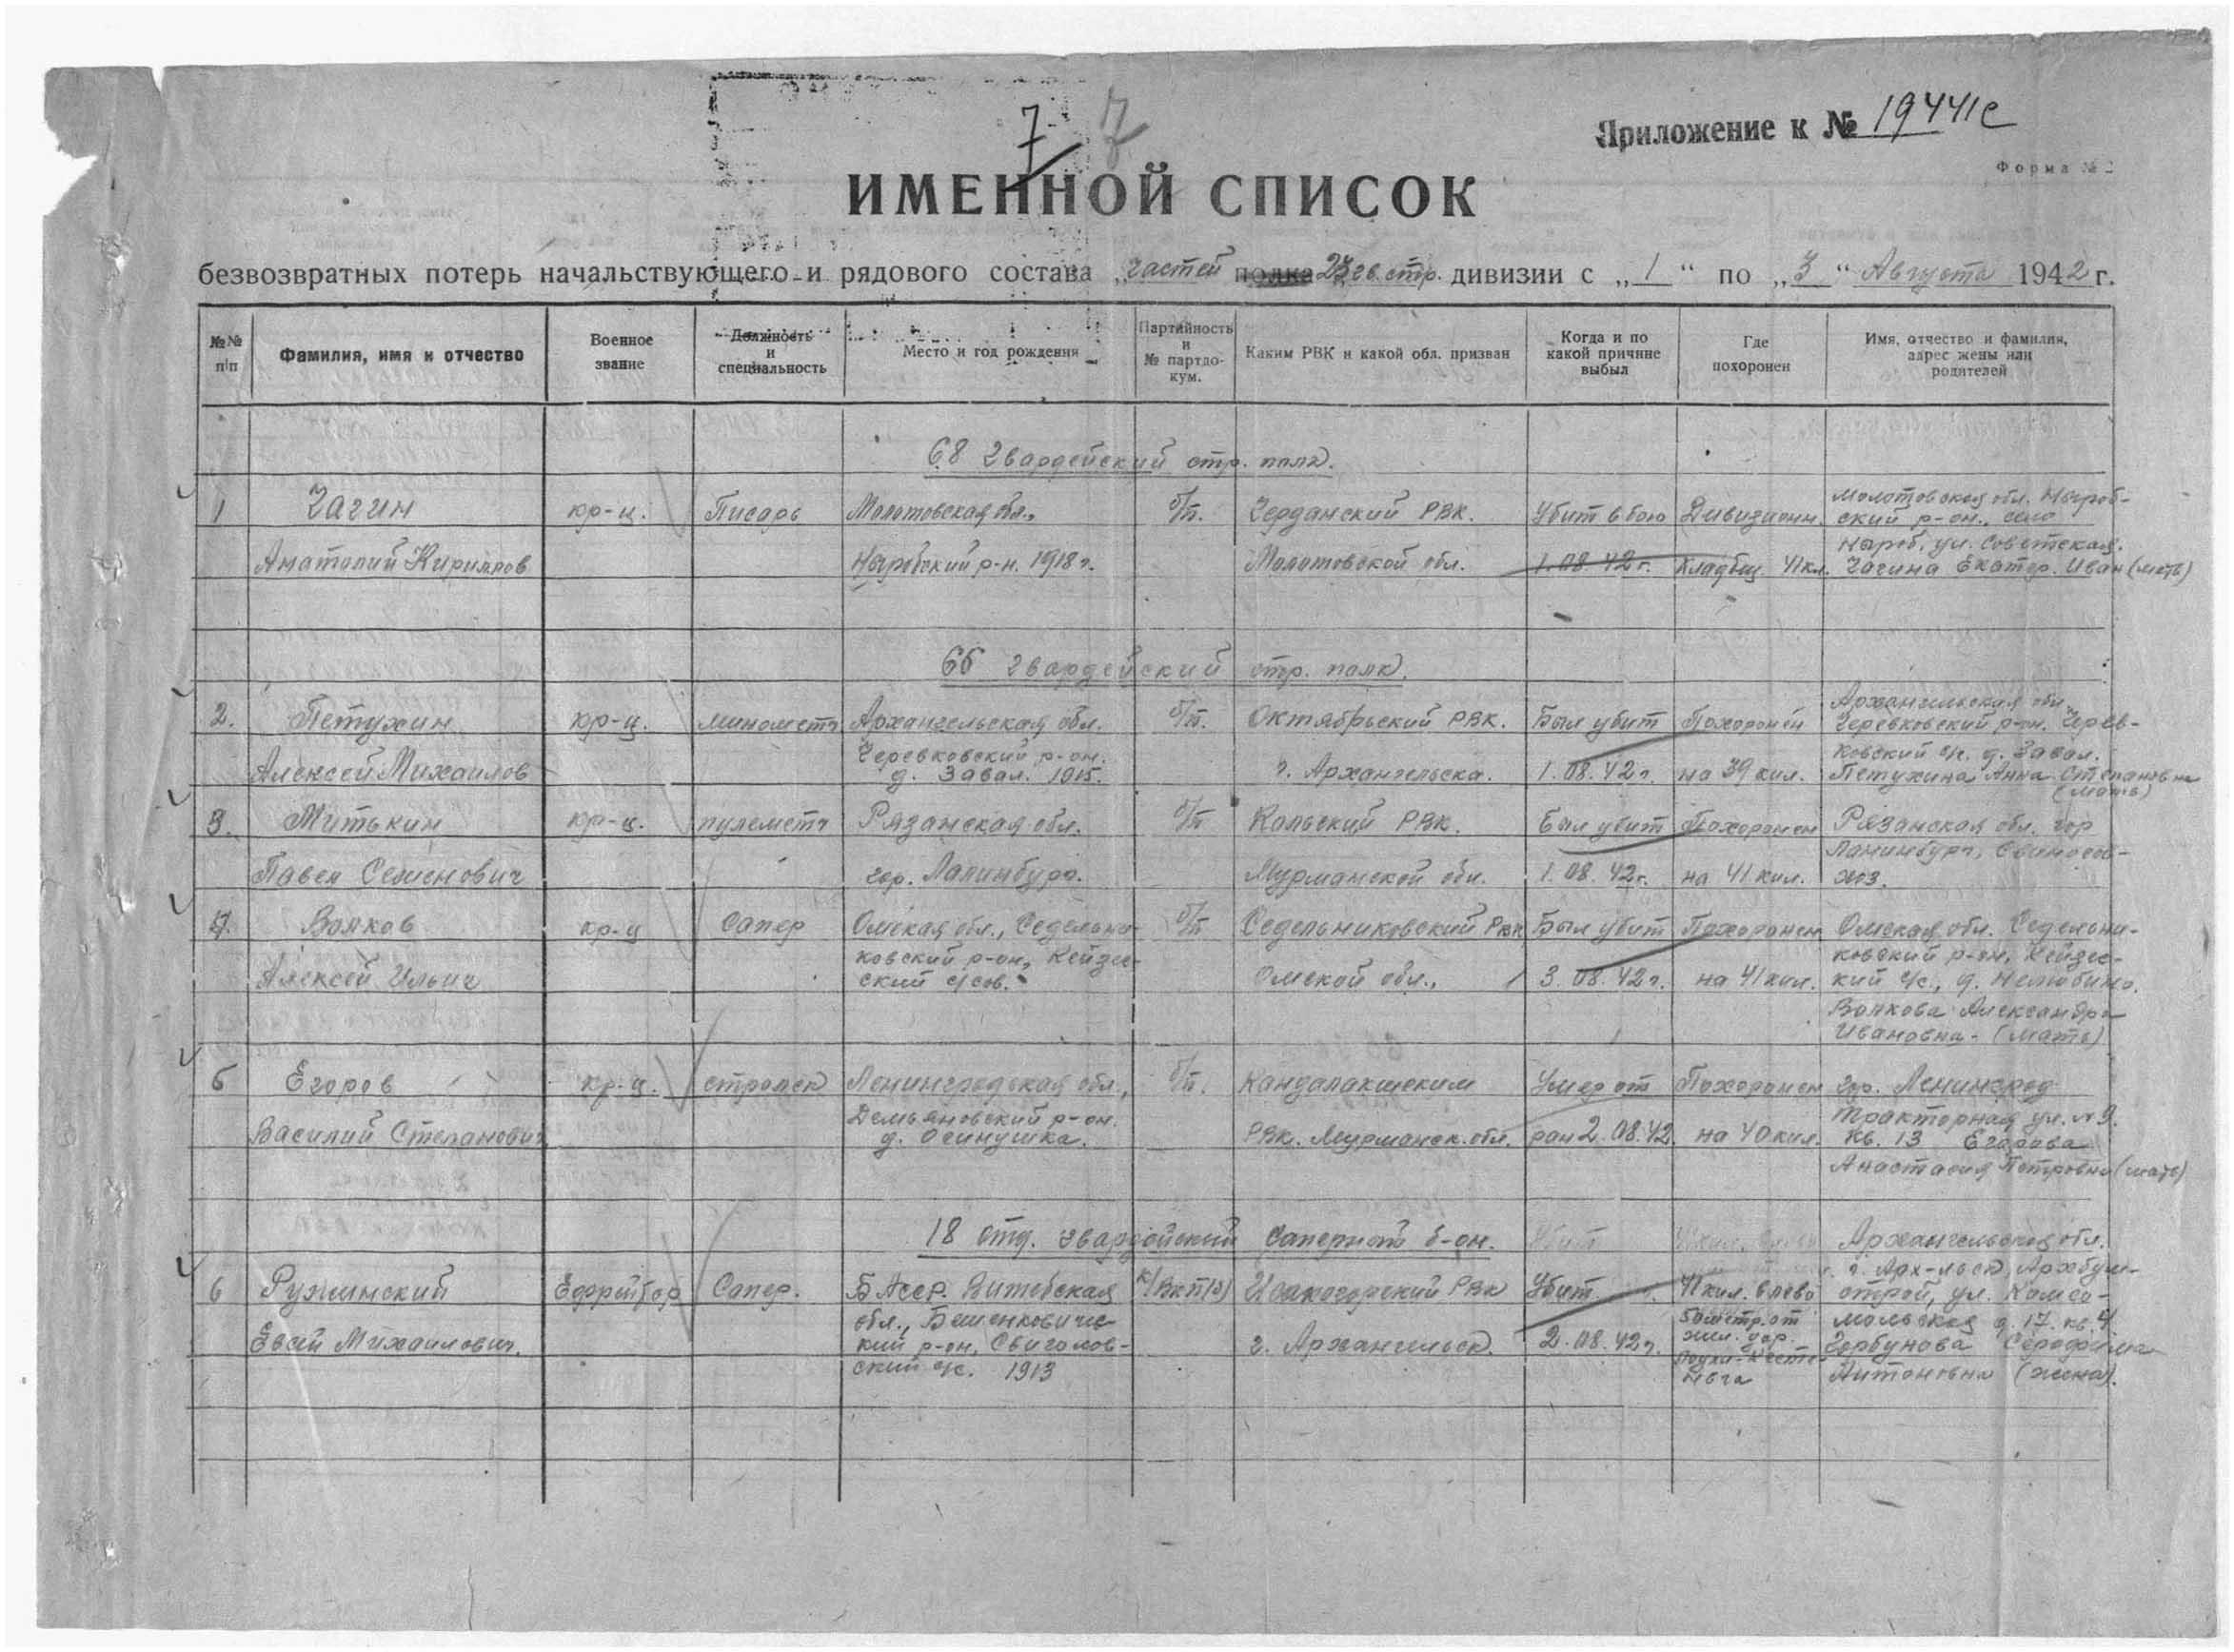 7 7
Приложение к № 19441с
Форма № 2
ИМЕННОЙ СПИСОК
безвозвратных потерь начальствующего и рядового состава частей полка 23 гв. стр. дивизии с „1“ по „3“ Августа 1942 г.
№№ п\п
Фамилия, имя и отчество
Военное звание
Должность и специальность
Место и год рождения
Партийность и № партдокум.
Каким РВК и какой обл. призван
Когда и по какой причине выбыл
Где похоронен
Имя, отчество и фамилия, адрес жены или родителей
68 гвардейский стр. полк.
1 Чагин кр-ц. Писарь Молотовская обл., б/п. Чердынский РВК. Убит в бою Дивизионн. Молотовская обл. Ныроб-
ский р-он., село
Анатолий Кириллов Ныробский р-н. 1918 г. Молотовской обл. 1.08.42 г. кладбищ. 41 кл. Ныроб, ул. Советская.
Чагина Екатер. Иван (мать)
66 гвардейский стр. полк.
2. Петухин кр-ц. минометч Архангельская обл. б/п. Октябрьский РВК. Был убит Похоронен Архангельская обл.
Черевковский р-он. Черев-
Алексей Михаилов Черевковский р-он. г. Архангельска. 1.08.42 г. на 39 кил. ковский с/с. д. Завал.
д. Завал. 1915. Петухина Анна Степановна
(мать)
3. Митькин кр-ц. пулеметч Рязанская обл. б/п Кольский РВК. Был убит Похоронен Рязанская обл. гор
Павел Семенович гор. Ланинбург. Мурманской обл. 1.08.42 г. на 41 кил. Ланинбург, Свиносов-
хоз.
4. Волков кр-ц Сапер Омская обл., Седельни- б/п Седельниковский РВК Был убит Похоронен Омская обл. Седельни-
ковский р-он, Кейзес- ковский р-он, Кейзес-
Алексей Ильич ский с/сов. Омской обл., 3.08.42 г. на 41 кил. кий с/с., д. Нелюбино.
Волкова Александра
Ивановна - (мать)
5 Егоров кр-ц. стрелок Ленинградская обл., б/п. Кандалакшским Умер от Похоронен гор. Ленинград
Демьяновский р-он. Тракторная ул. № 9.
Василий Степанович д. Осинушка. РВК. Мурманск. обл. ран 2.08.42. на 40 кил. кв. 13 Егорова
Анастасия Петровна (мать)
18 отд. гвардейский саперный б-он. Убит Архангельская обл.
г. Арх-льск, Архбум-
6 Ружинский Ефрейтор Сапер. БАССР. Витебская к/ВКП(б) Исакогорский РВК Убит. 41 кил. влево строй, ул. Комсо-
обл., Бешенковичс- 50 метр. от мольская д. 17. кв. 4
Евсей Михаилович. кий р-он, Свиголов- г. Архангельск. 2.08.42 г. жил. дор. Горбунова Серафима
ский с/с. 1913 Лоухи-Кесте- Антоновна (жена).
ньга